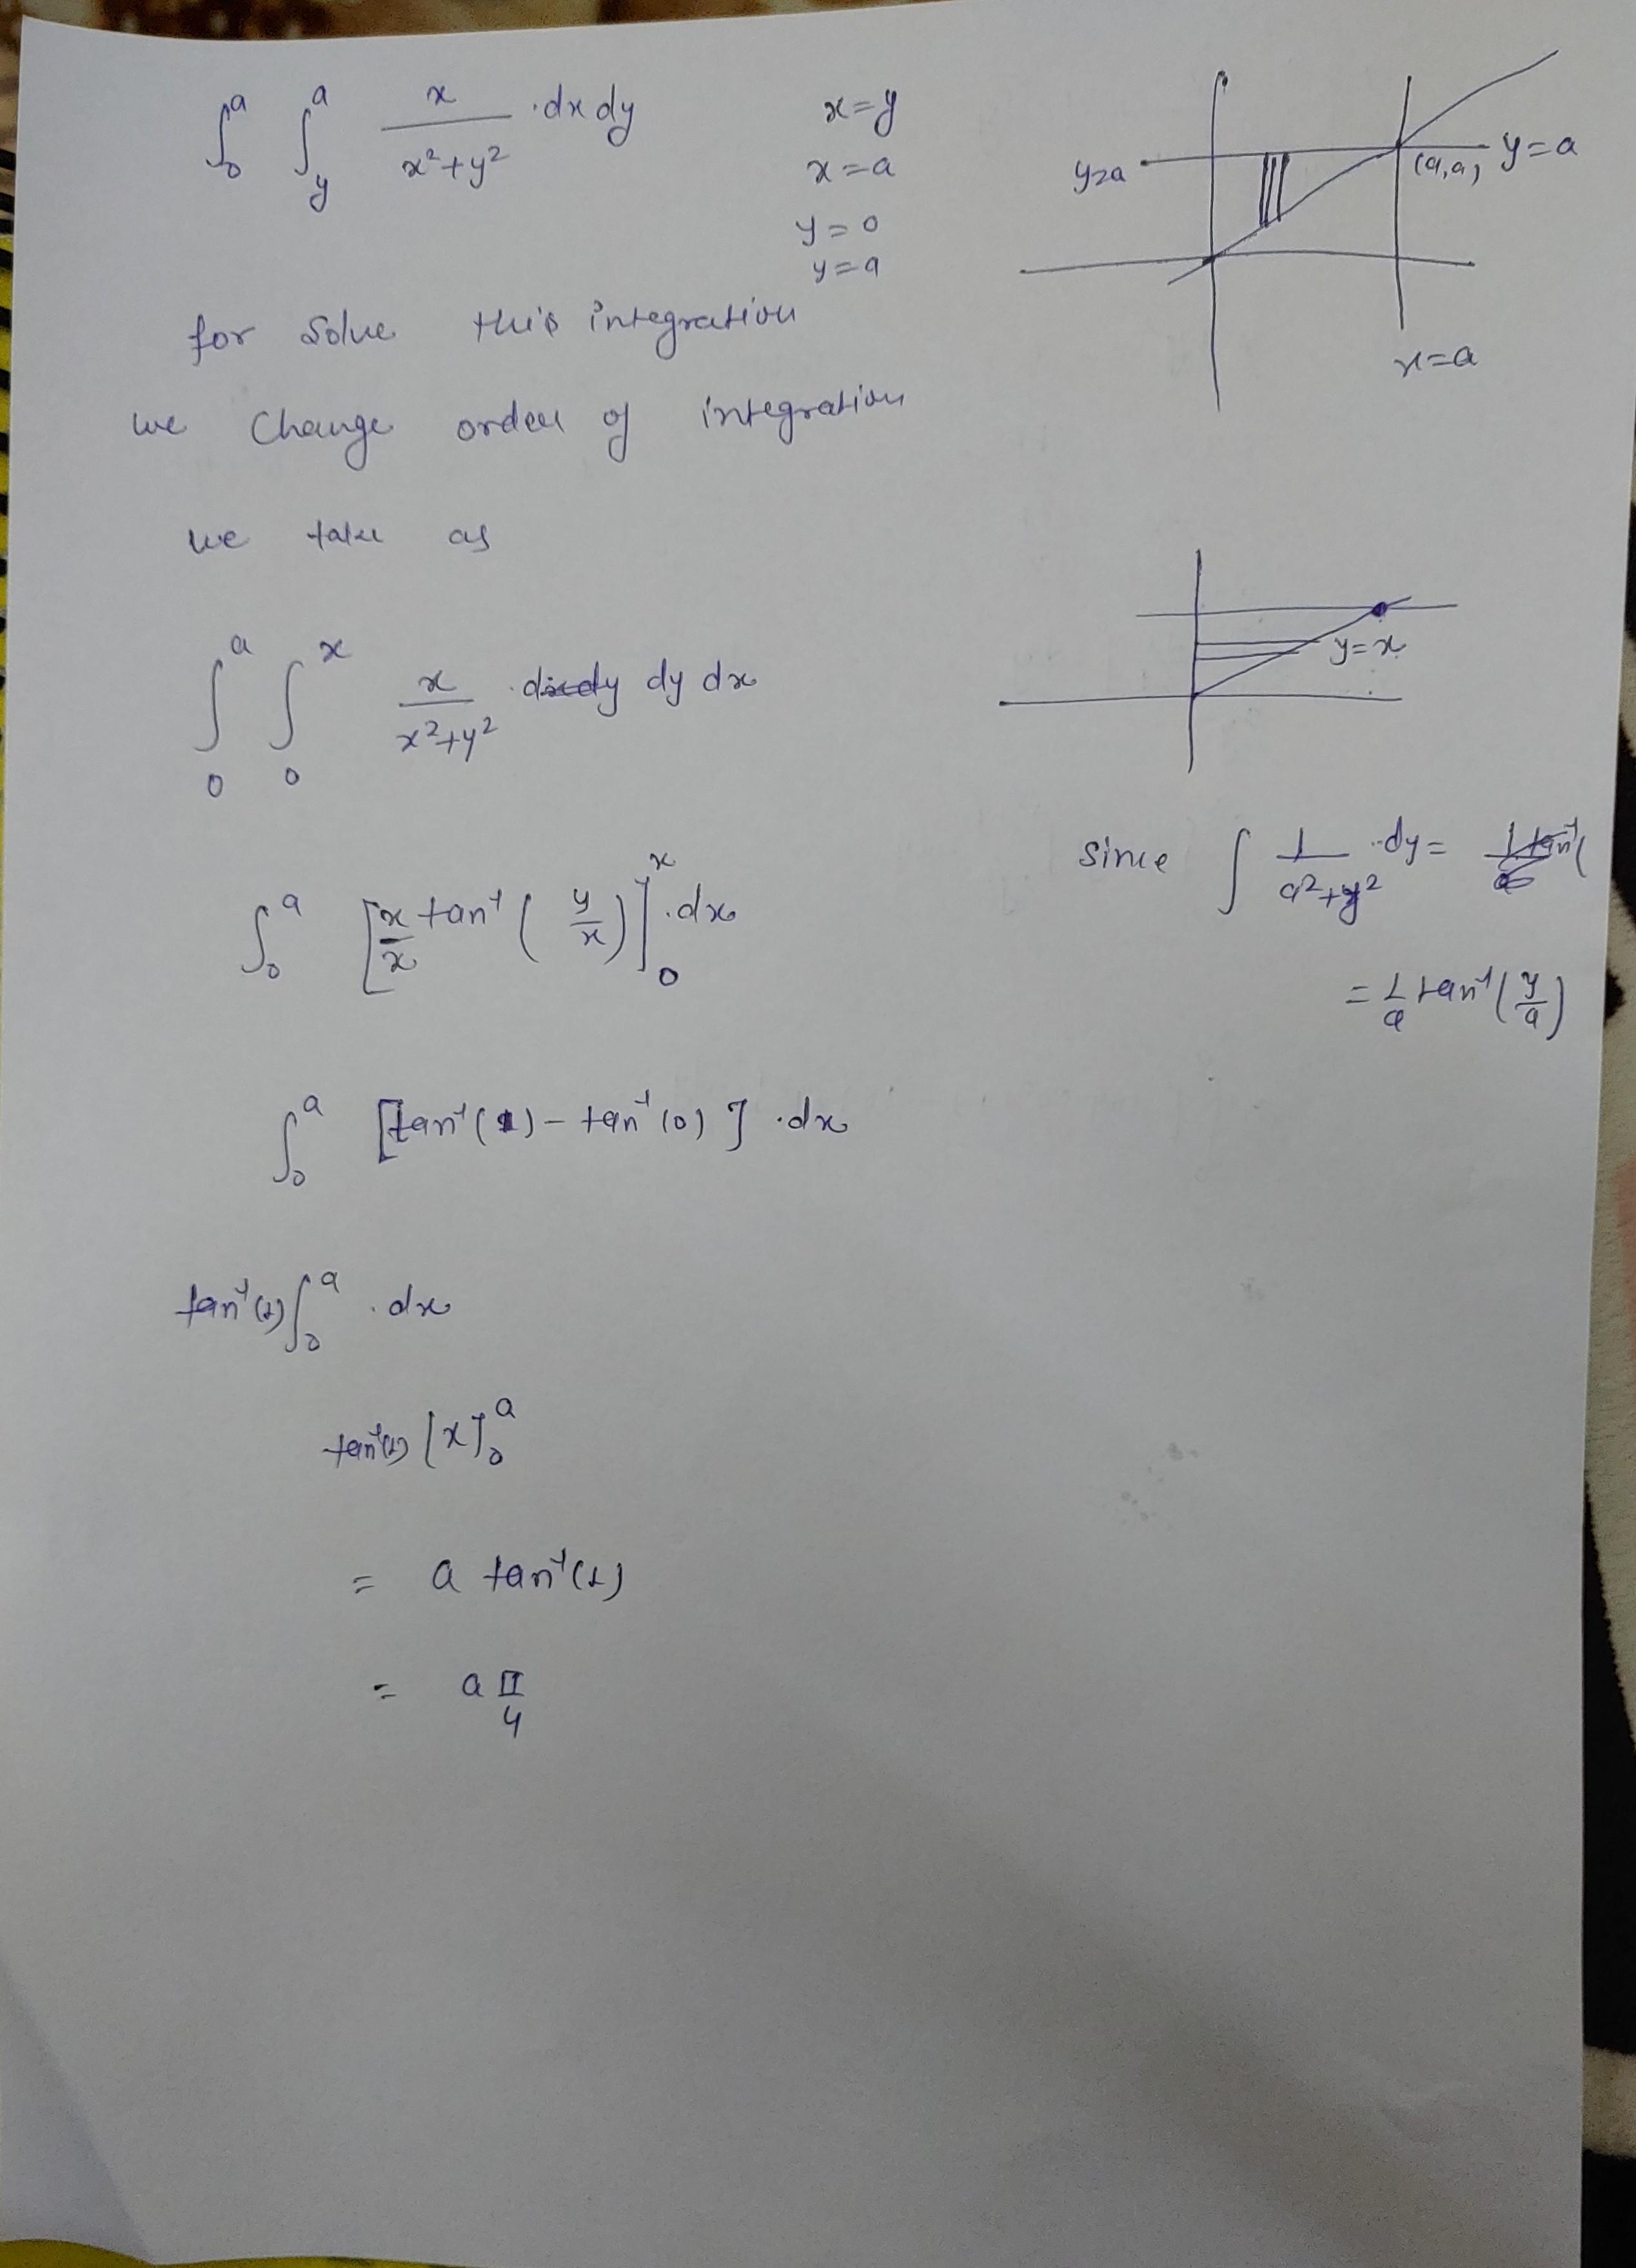 ∫₀ᵃ ∫ᵧᵃ x/(x²+y²) .dx dy
x=y
x=a
y=0
y=a
y=a
(a,a) y=a
x=a
for solve this integration
we change order of integration
we take as
∫₀ᵃ ∫₀ˣ x/(x²+y²) .dxdy dy dx
y=x
∫₀ᵃ [x/x tan⁻¹(y/x)]₀ˣ .dx
since ∫ 1/(a²+y²) .dy = 1/a tan⁻¹(
= 1/a tan⁻¹(y/a)
∫₀ᵃ [tan⁻¹(1) - tan⁻¹(0)] .dx
tan⁻¹(1) ∫₀ᵃ .dx
tan⁻¹(1) [x]₀ᵃ
= a tan⁻¹(1)
= a π/4